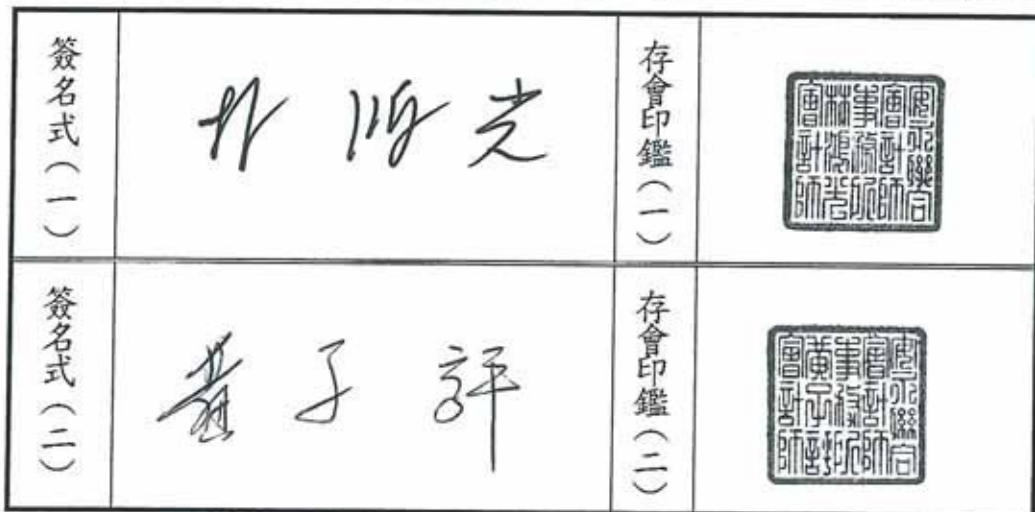 簽名式（一）
林鴻光
存會印鑑（一）
安永聯合
會計師
事務所
林鴻光
會計師
簽名式（二）
黃子評
存會印鑑（二）
安永聯合
會計師
事務所
黃子評
會計師